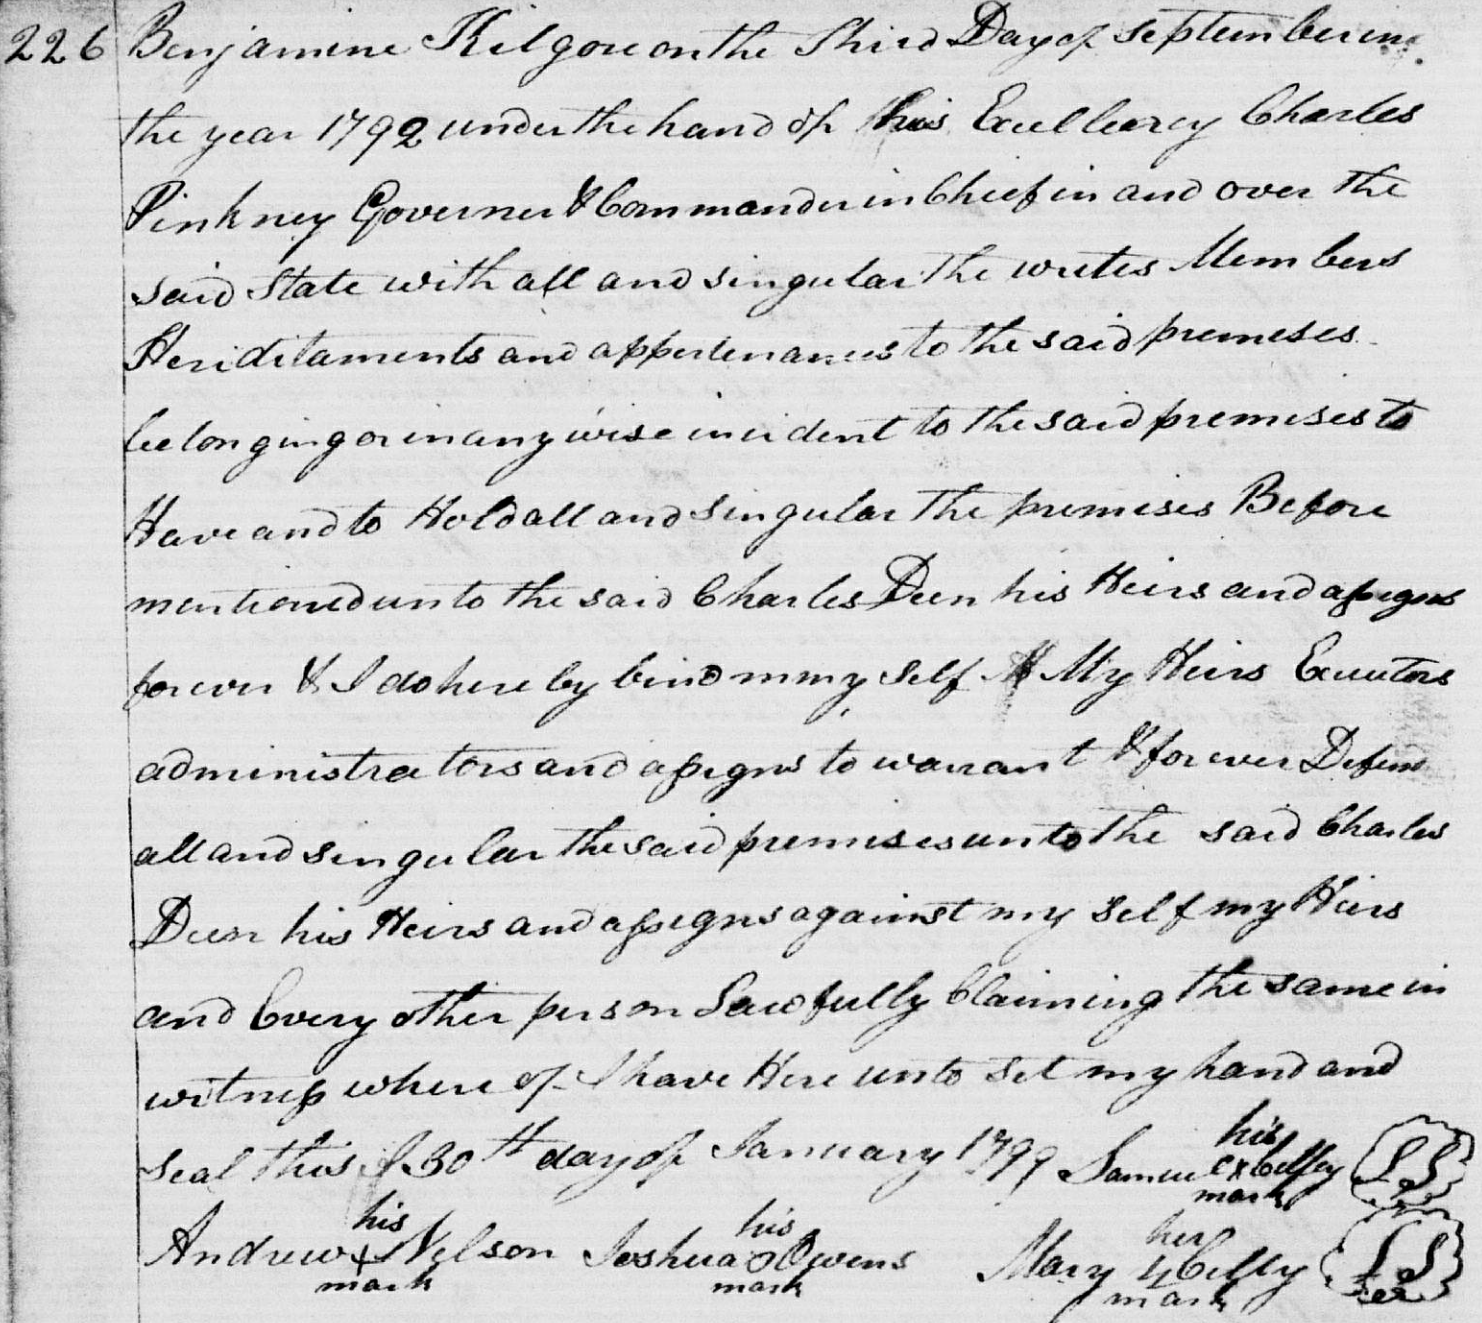 226 Benjamine Kilgore on the Third Day of September in
the year 1792 under the hand of his Excellency Charles
Pinkney Governer & Commander in Chief in and over the
said State with all and singular the writes Members
Heriditaments and appertenances to the said premeses
belonging or in any wise incident to the said premises to
Have and to Hold all and singular the premises Before
mentioned unto the said Charles Deen his Heirs and assigns
forever & I do hereby bind mmy self My Heirs Executors
administrators and assigns to warrant & forever Defend
all and singular the said premises unto the said Charles
Deen his Heirs and assigns against my self my Heirs
and Every other person Lawfully Claiming the same in
witness where of I have Here unto set my hand and
seal this 30th day of January 1799 Samuel his x mark LS
Andrew his x mark Nelson Joshua his mark Owens Mary her mark LS